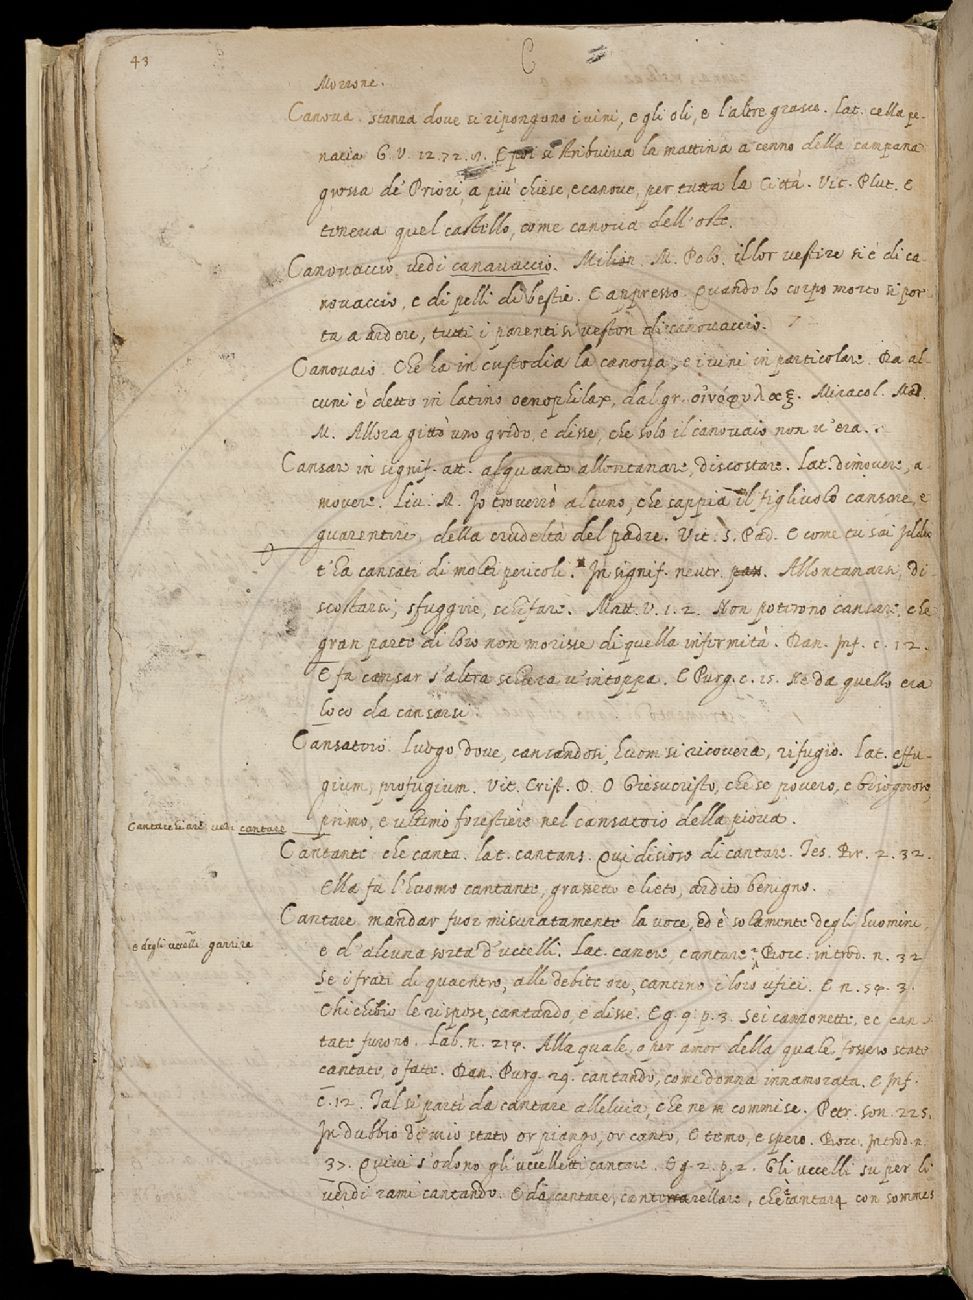 43
C
Morrone.
Canova. stanza dove si ripongono i vini, e gli oli, e l'altre grasce. lat. cella pe-
naria G. V. 12. 72. E poi si stribuiva la mattina a cenno della campana
grossa de' Priori, a più chiese, e canove, per tutta la Città. Vit. Plut. E
teneva quel castello, come canova dell'oste.
Canovaccio, vedi canavaccio. Milion. M. Polo. il lor vestire si è di ca-
novaccio, e di pelli di bestie. E appresso. Quando lo corpo morto si por-
ta a ardere, tutti i parenti si veston di canovaccio.
Canovaio. Che ha in custodia la canova, e i vini in particolare. Da al-
cuni è detto in latino oenophilax, dal gr. οἰνόφυλαξ. Miracol. Mad.
M. Allora gittò uno grido, e disse, che solo il canovaio non v'era.
Cansare in signif. att. alquanto allontanare, discostare. Lat. dimovere, a-
movere. Liv. M. Io troverrò alcuno, che sappia il figliuolo cansare, e
guarentire, della crudeltà del padre. Vit. S. Pad. E come tu sai Iddio
t'ha cansati di molti pericoli. In signif. neutr. pass. Allontanarsi, di-
scostarsi, sfuggire, schifare. Matt. V. 1. 2. Non poterono cansare, che
gran parte di loro non morisse di quella infermità. Dan. Inf. c. 12.
E fa cansar s'altra schiera v'intoppa. E Purg. c. 15. Ne da quello era
loco da cansarsi
Cansatoio. Luogo dove, cansandosi, huom si ricovera, rifugio. Lat. effu-
gium, profugium. Vit. Crist. D. O Giesucristo, che se povero, e bisognoso,
primo, e ultimo forestiere nel cansatoio della piova.
Cantacchiare vedi cantare
Cantante che canta. lat. cantans. Qui disioso di cantare. Tes. Br. 2. 32.
Ella fa l'huomo cantante, grassetto e lieto, ardito benigno.
Cantare, mandar fuor misuratamente la voce, ed è solamente degli huomini,
e d'alcuna sorta d'uccelli. Lat. canere, cantare. Bocc. introd. n. 32
e degli uccelli garrire
Se i frati di qua entro, alle debite ore, cantino i loro ufici. E n. 54. 3.
Chichibio le rispose, cantando, e disse. E g. 9. p. 3. Sei canzonette, e c can-
tate furono. Lab. n. 214. Alla quale, o per amor della quale, fossero state
cantate, o fatte. Dan. Purg. 29. cantando, come donna innamorata. E Inf.
c. 12. Tal si partì da cantare alleluia, che ne m commise. Petr. son. 225.
In dubbio di mio stato or piango, or canto, E temo, e spero. Bocc. Introd. n.
37. Quivi s'odono gli uccelletti cantare. E g. 2. p. 2. Gli uccelli su per li
verdi rami cantando. E da cantare, canterellare, che è cantar con sommes